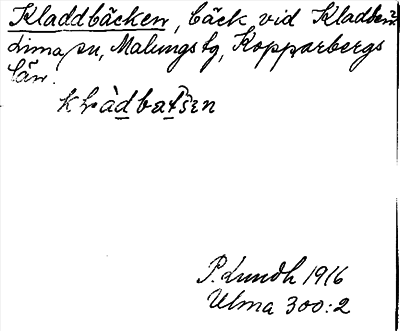 Kladdbäcken, bäck vid
Lima sn, Malungs tg, Kopparbergs
län.
P. Lundh 1916
Ulma 300:2